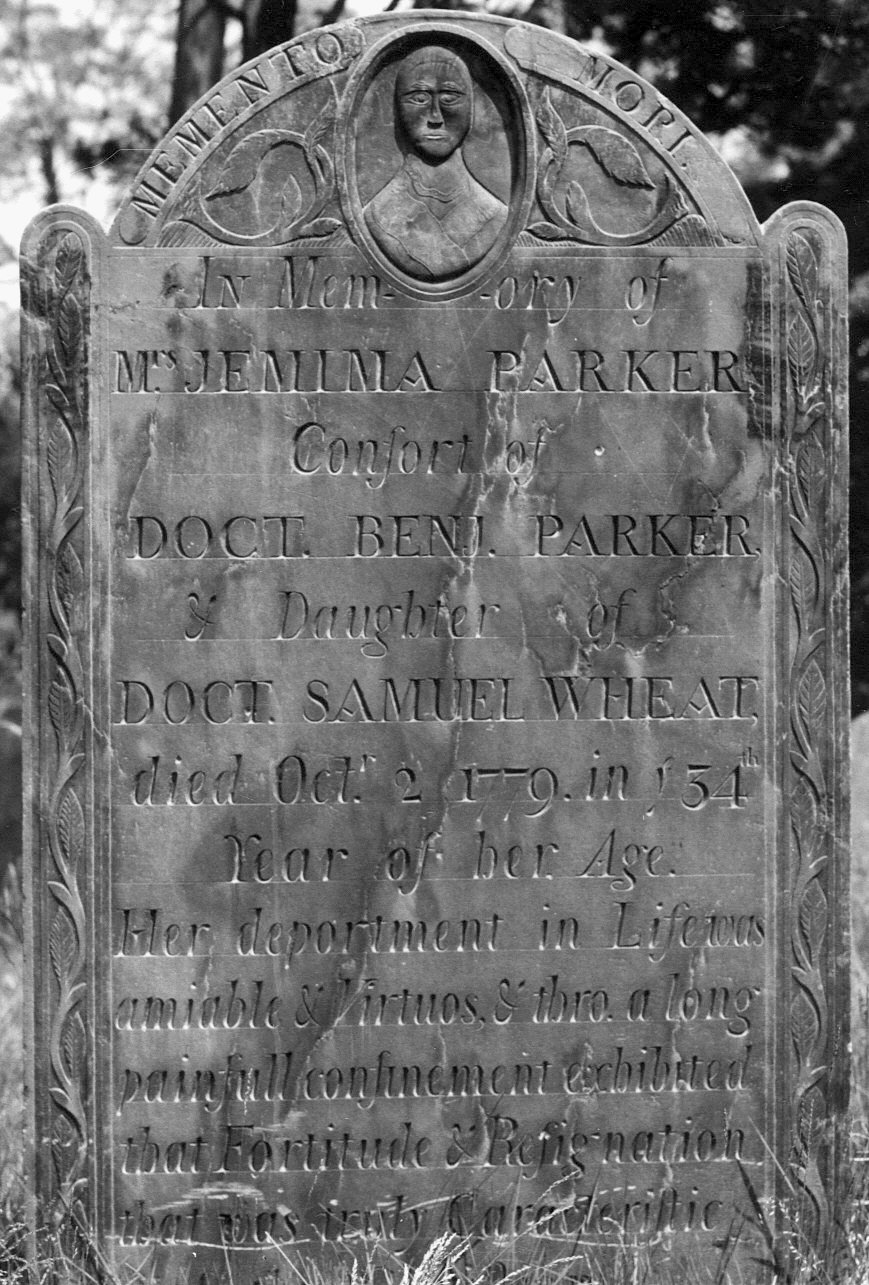 MEMENTO MORI.
In Mem- -ory of
Mrs. JEMIMA PARKER
Conſort of
DOCT. BENJ. PARKER,
& Daughter of
DOCT. SAMUEL WHEAT,
died Octr. 2 1779. in ye 34th
Year of her Age.
Her deportment in Life was
amiable & Virtuos, & thro. a long
painfull confinement exhibited
that Fortitude & Reſignation
that was truly Caracteriſtic